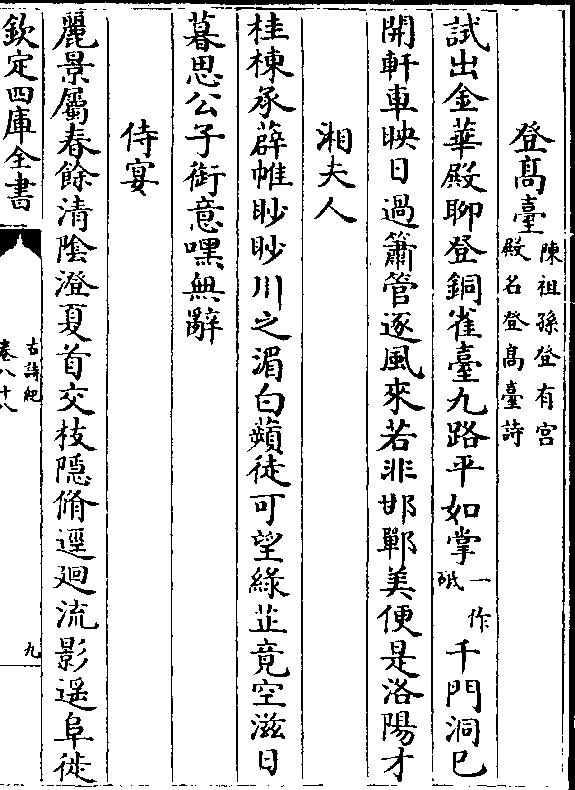 登髙臺陳祖孫登有宫殿名登髙臺詩
試出金華殿聊登銅雀臺九路平如掌一作砥千門洞已
開軒車映日過簫管逐風來若非邯鄲美便是洛陽才
湘夫人
桂棟承薜帷眇眇川之湄白蘋徒可望綠芷竟空滋日
暮思公子銜意嘿無辭
侍宴
麗景屬春餘清陰澄夏首交枝隠脩逕廻流影遥阜徙
欽定四庫全書
古詩紀
卷八十八
九